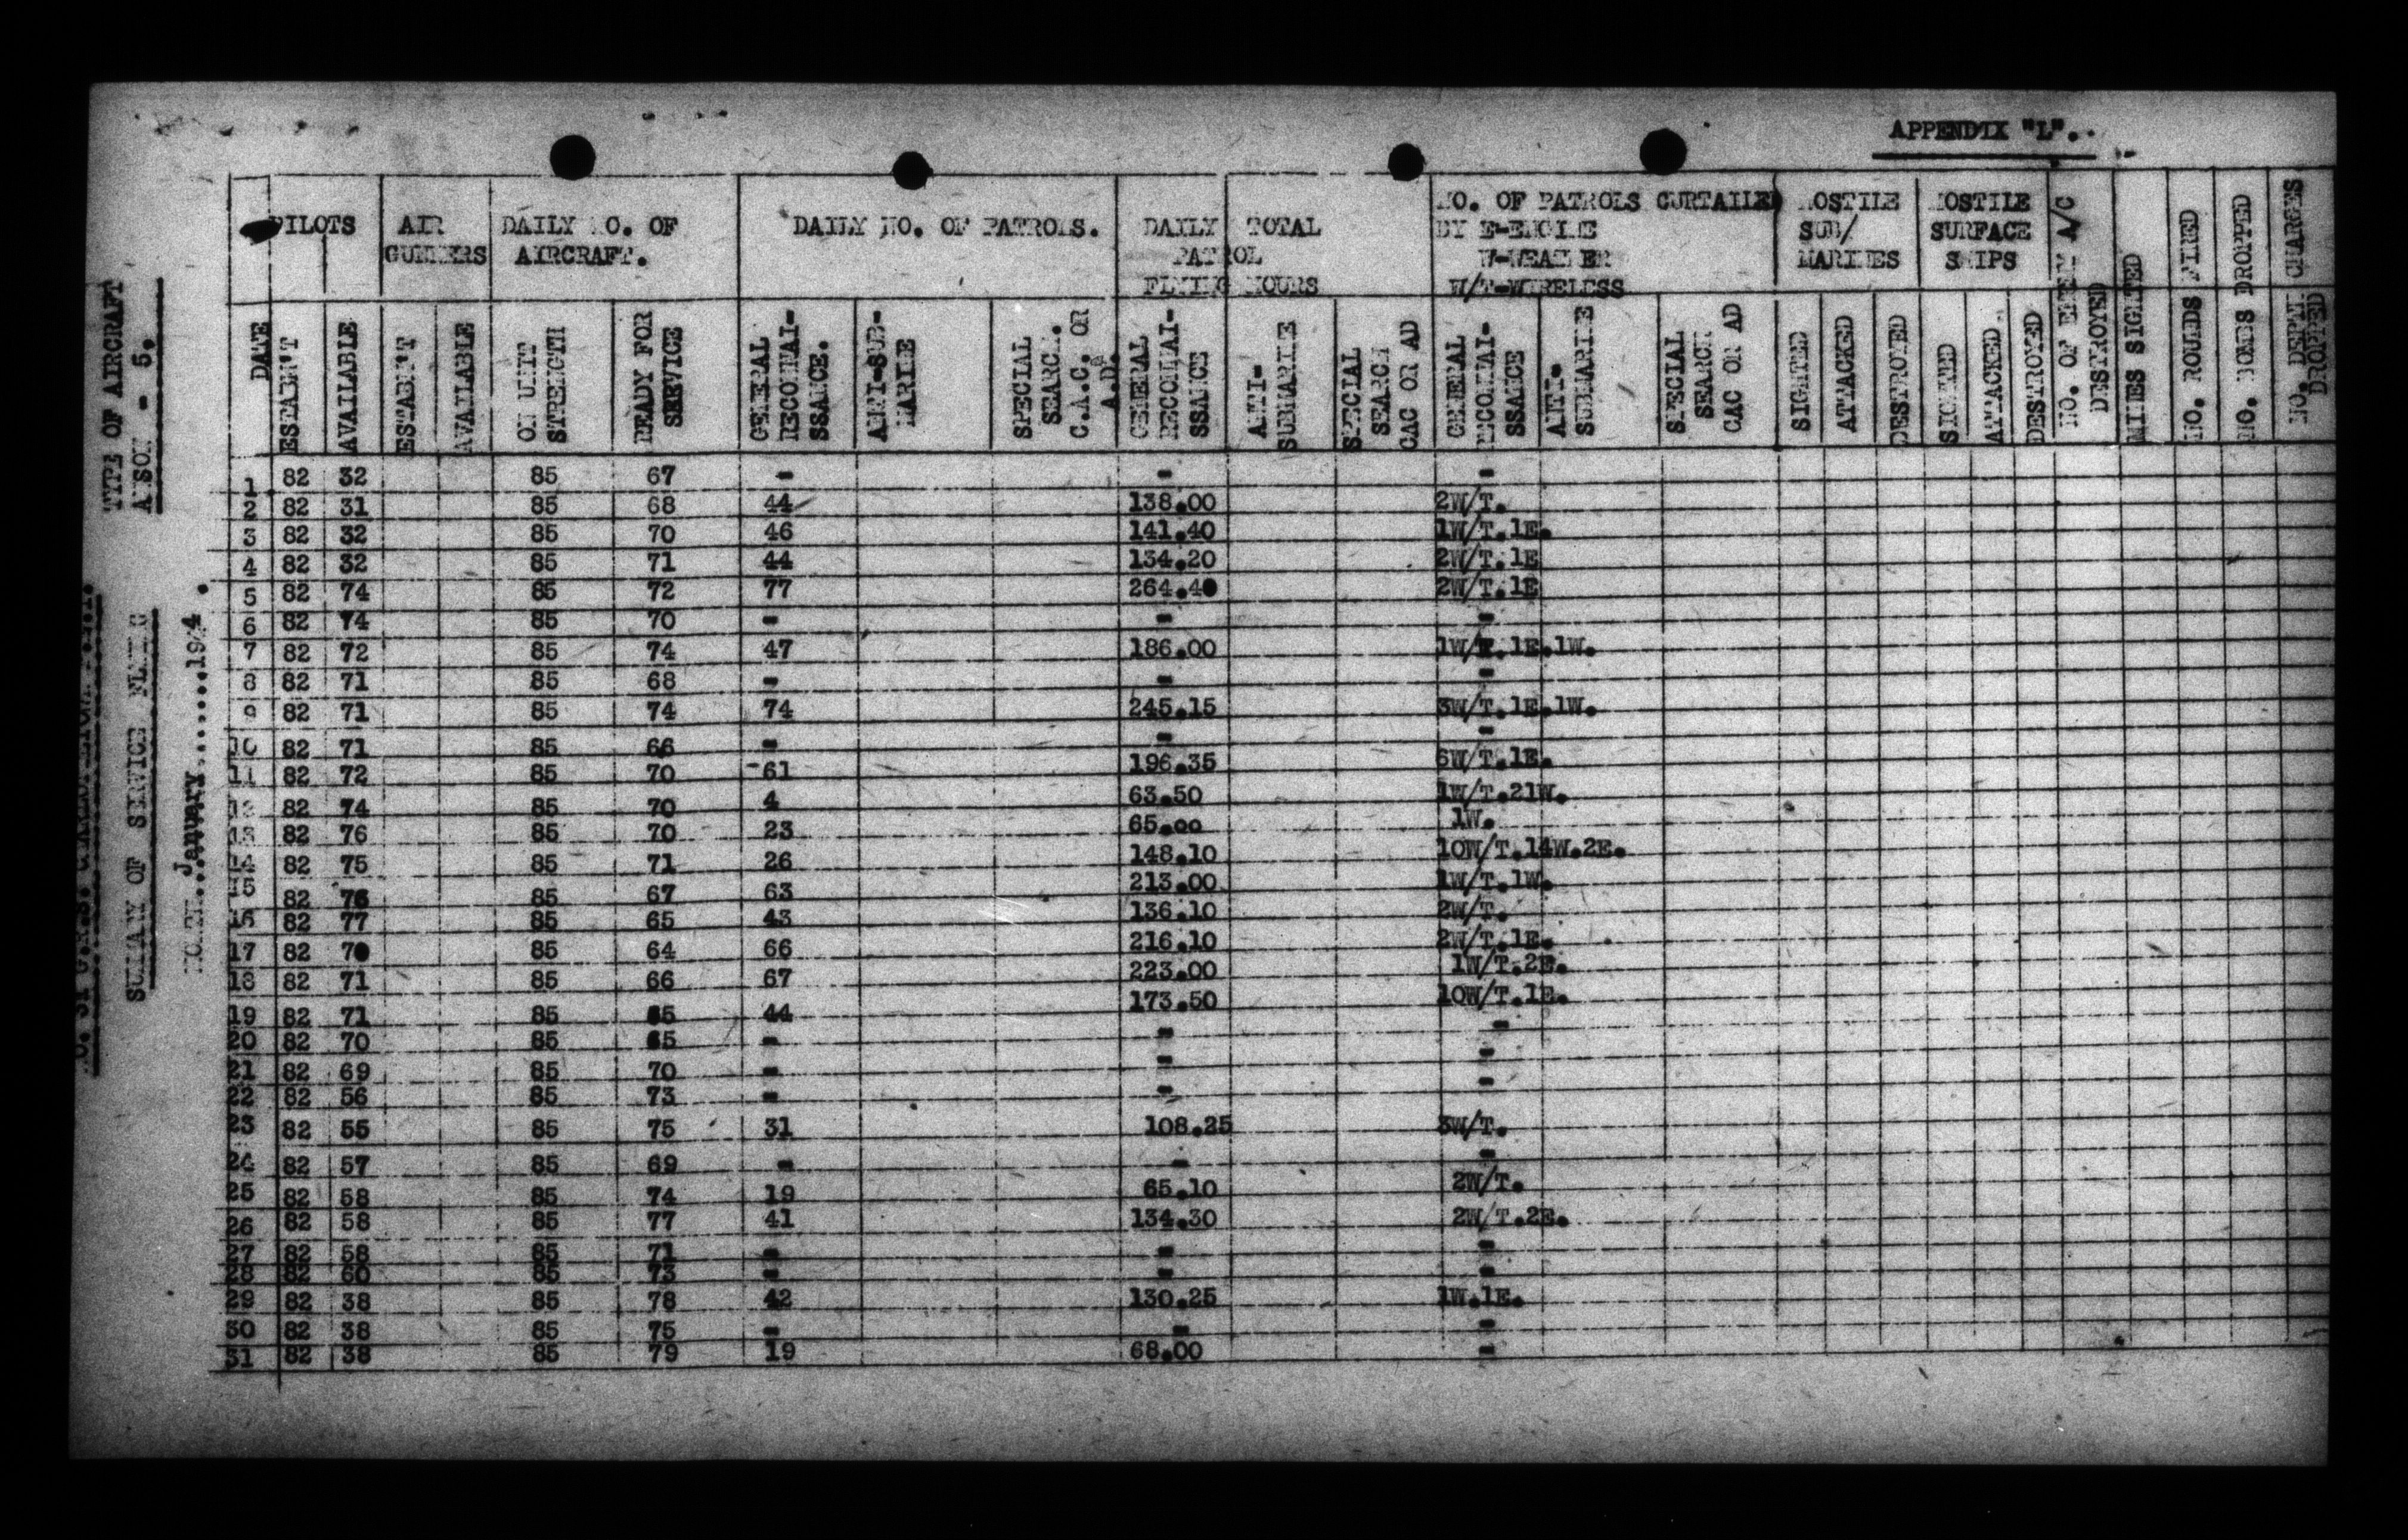 APPENDIX "L".
TYPE OF AIRCRAFT
ANSON - 5.
SUMMARY OF SERVICE FLYING
MONTH...January.......1944.
DATE
PILOTS
ESTABN'T
AVAILABLE
AIR
GUNNERS
ESTABN'T
AVAILABLE
DAILY NO. OF
AIRCRAFT.
ON UNIT
STRENGTH
READY FOR
SERVICE
DAILY NO. OF PATROLS.
GENERAL
RECONNAI-
SSANCE.
ANTI-SUB-
MARINE
SPECIAL
SEARCH.
C.A.C. OR
A.D.
DAILY TOTAL
PATROL
FLYING HOURS
GENERAL
RECONNAI-
SSANCE
ANTI-
SUBMARINE
SPECIAL
SEARCH
CAC OR AD
NO. OF PATROLS CURTAILED
BY E-ENGINE
W-WEATHER
W/T-WIRELESS
GENERAL
RECONNAI-
SSANCE
ANTI-
SUBMARINE
SPECIAL
SEARCH
CAC OR AD
HOSTILE
SUB/
MARINES
SIGHTED
ATTACKED
DESTROYED
HOSTILE
SURFACE
SHIPS
SIGHTED
ATTACKED
DESTROYED
NO. OF ENEMY A/C
DESTROYED
MINES SIGHTED
NO. ROUNDS FIRED
NO. BOMBS DROPPED
NO. DEPTH CHARGES
DROPPED
1 82 32 85 67 - - -
2 82 31 85 68 44 138.00 2W/T.
3 82 32 85 70 46 141.40 1W/T.1E.
4 82 32 85 71 44 134.20 2W/T.1E
5 82 74 85 72 77 264.40 2W/T.1E
6 82 74 85 70 - - -
7 82 72 85 74 47 186.00 1W/T.1E.1W.
8 82 71 85 68 - - -
9 82 71 85 74 74 245.15 3W/T.1E.1W.
10 82 71 85 66 - - -
11 82 72 85 70 61 196.35 6W/T.1E.
12 82 74 85 70 4 63.50 1W/T.21W.
13 82 76 85 70 23 65.00 1W.
14 82 75 85 71 26 148.10 10W/T.14W.2E.
15 82 76 85 67 63 213.00 1W/T.1W.
16 82 77 85 65 43 136.10 2W/T.
17 82 70 85 64 66 216.10 2W/T.1E.
18 82 71 85 66 67 223.00 1W/T.2E.
19 82 71 85 65 44 173.50 10W/T.1E.
20 82 70 85 65 - - -
21 82 69 85 70 - - -
22 82 56 85 73 - - -
23 82 55 85 75 31 108.25 3W/T.
24 82 57 85 69 - - -
25 82 58 85 74 19 65.10 2W/T.
26 82 58 85 77 41 134.30 2W/T.2E.
27 82 58 85 71 - - -
28 82 60 85 73 - - -
29 82 38 85 78 42 130.25 1W.1E.
30 82 38 85 75 - - -
31 82 38 85 79 19 68.00 -